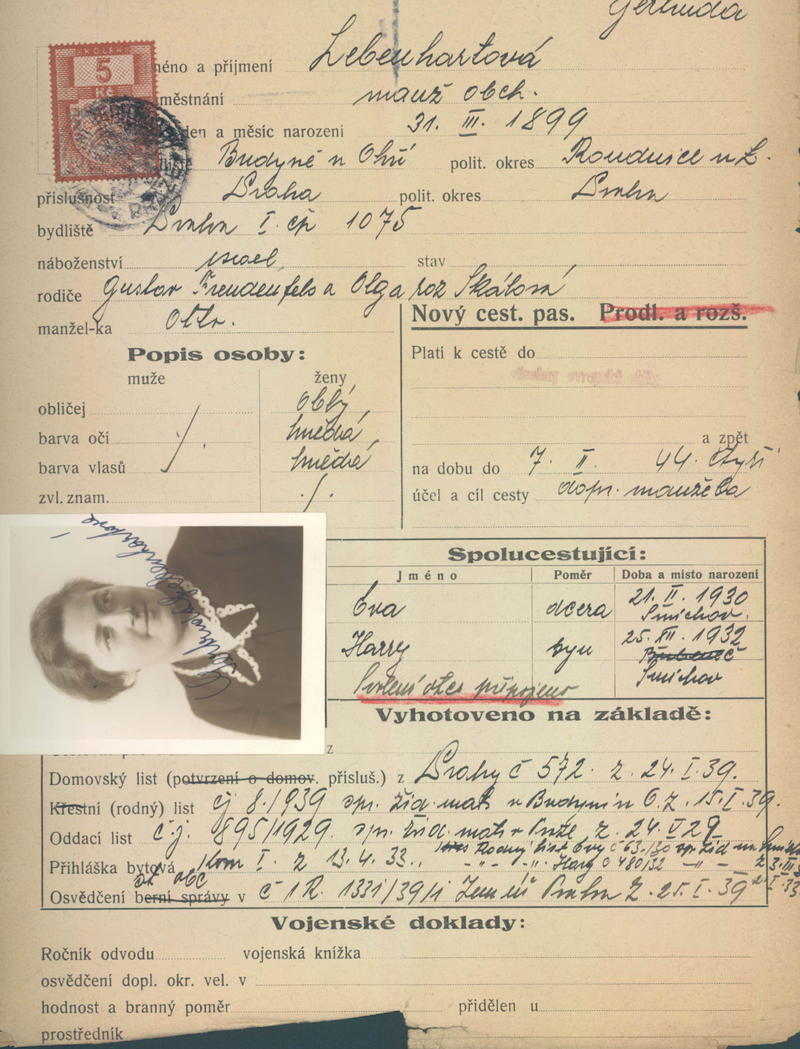 Gertruda
KOLEK
5
Kč
méno a příjmení Lebenhartová
městnání manž obch.
den a měsíc narození 31. III. 1899
iště Budyně n Ohří polit. okres Roudnice n L.
příslušnost Praha polit. okres Praha
bydliště Praha I. čp 1075
náboženství israel. stav
rodiče Gustav Freudenfels a Olga roz Skálová
manžel-ka Otto.
Nový cest. pas. Prodl. a rozš.
Popis osoby:
muže ženy
obličej oblý,
barva očí hnědá,
barva vlasů hnědá
zvl. znam. ./.
Platí k cestě do
a zpět
na dobu do 7. II. 44. čtyři
účel a cíl cesty dopr. manžela
Spolucestující:
Jméno Poměr Doba a místo narození
Eva dcera 21. II. 1930
Smíchov.
Harry syn 25. XII. 1932
Smíchov
Svolení otce připojeno
Vyhotoveno na základě:
z
Domovský list (potvrzení o domov. přísluš.) z Prahy č 572. z. 24. I. 39.
Křestní (rodný) list čj 8./1939 spr. žid. mat. v Budyni n O. z. 15. I. 39.
Oddací list č.j. 895/1929. spr. žid. mat. v z. 24. V 29
Rodný list Evy č 63./30 spr. žid
Přihláška bytová kom I. z 13. 4. 33., Harry č 480/32
Osvědčení berní správy v č 1 R. 1331/39/1 Zem úř Praha z. 25. I. 39
Vojenské doklady:
Ročník odvodu vojenská knížka
osvědčení dopl. okr. vel. v
hodnost a branný poměr přidělen u
prostředník